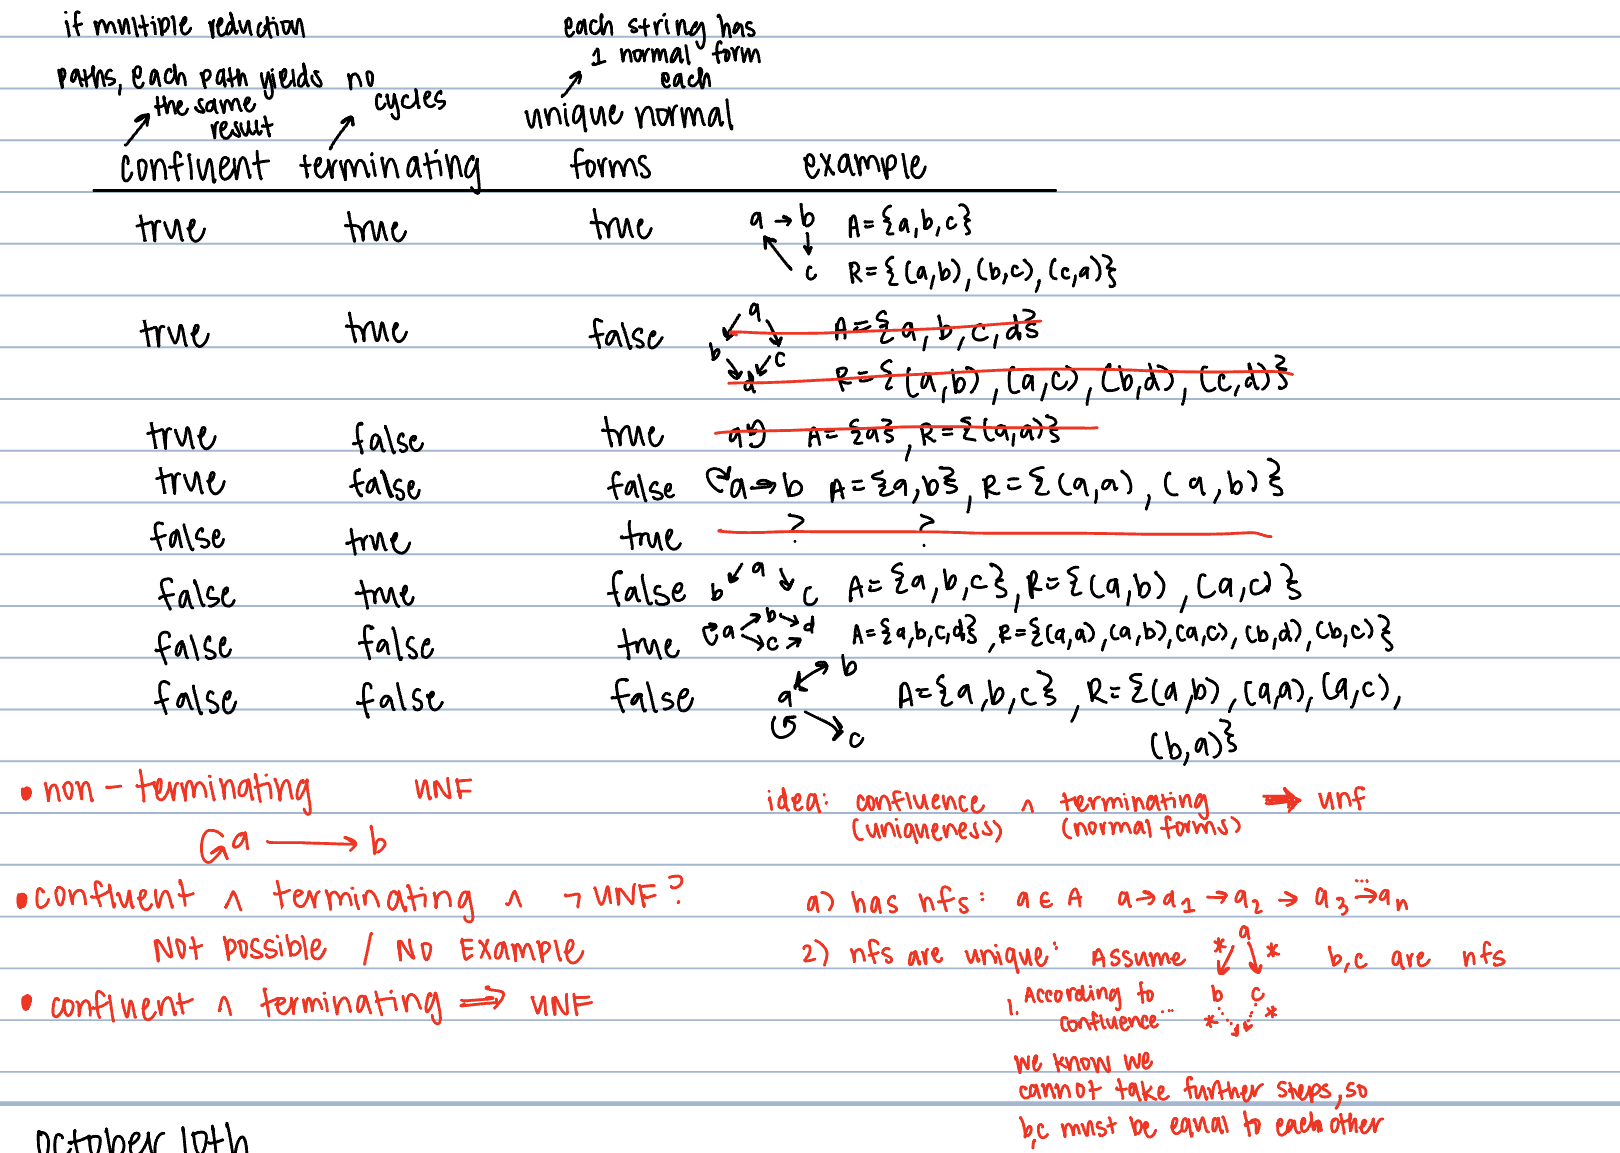 if multiple reduction
paths, each path yields
the same
result
no
cycles
each string has
1 normal form
each
unique normal
confluent terminating forms example
true true true a → b A = {a,b,c}
c R = {(a,b), (b,c), (c,a)}
true true false a b c d A = {a, b, c, d}
R = {(a,b), (a,c), (b,d), (c,d)}
true false true a A = {a}, R = {(a,a)}
true false false a → b A = {a,b}, R = {(a,a), (a,b)}
false true true ? ?
false true false b a c A = {a,b,c}, R = {(a,b), (a,c)}
false false true a b d c A = {a,b,c,d}, R = {(a,a), (a,b), (a,c), (b,d), (b,c)}
false false false a b c A = {a,b,c}, R = {(a,b), (a,a), (a,c),
(b,a)}
• non - terminating UNF
a → b
• confluent ∧ terminating ∧ ¬ UNF?
Not possible / No Example
• confluent ∧ terminating ⇒ UNF
idea: confluence ∧ terminating → unf
(uniqueness) (normal forms)
a) has nfs: a ∈ A a → a1 → a2 → a3 ...→ an
2) nfs are unique: Assume a * * b c b,c are nfs
1. According to
confluence... * *
we know we
cannot take further steps, so
b,c must be equal to each other
october 10th